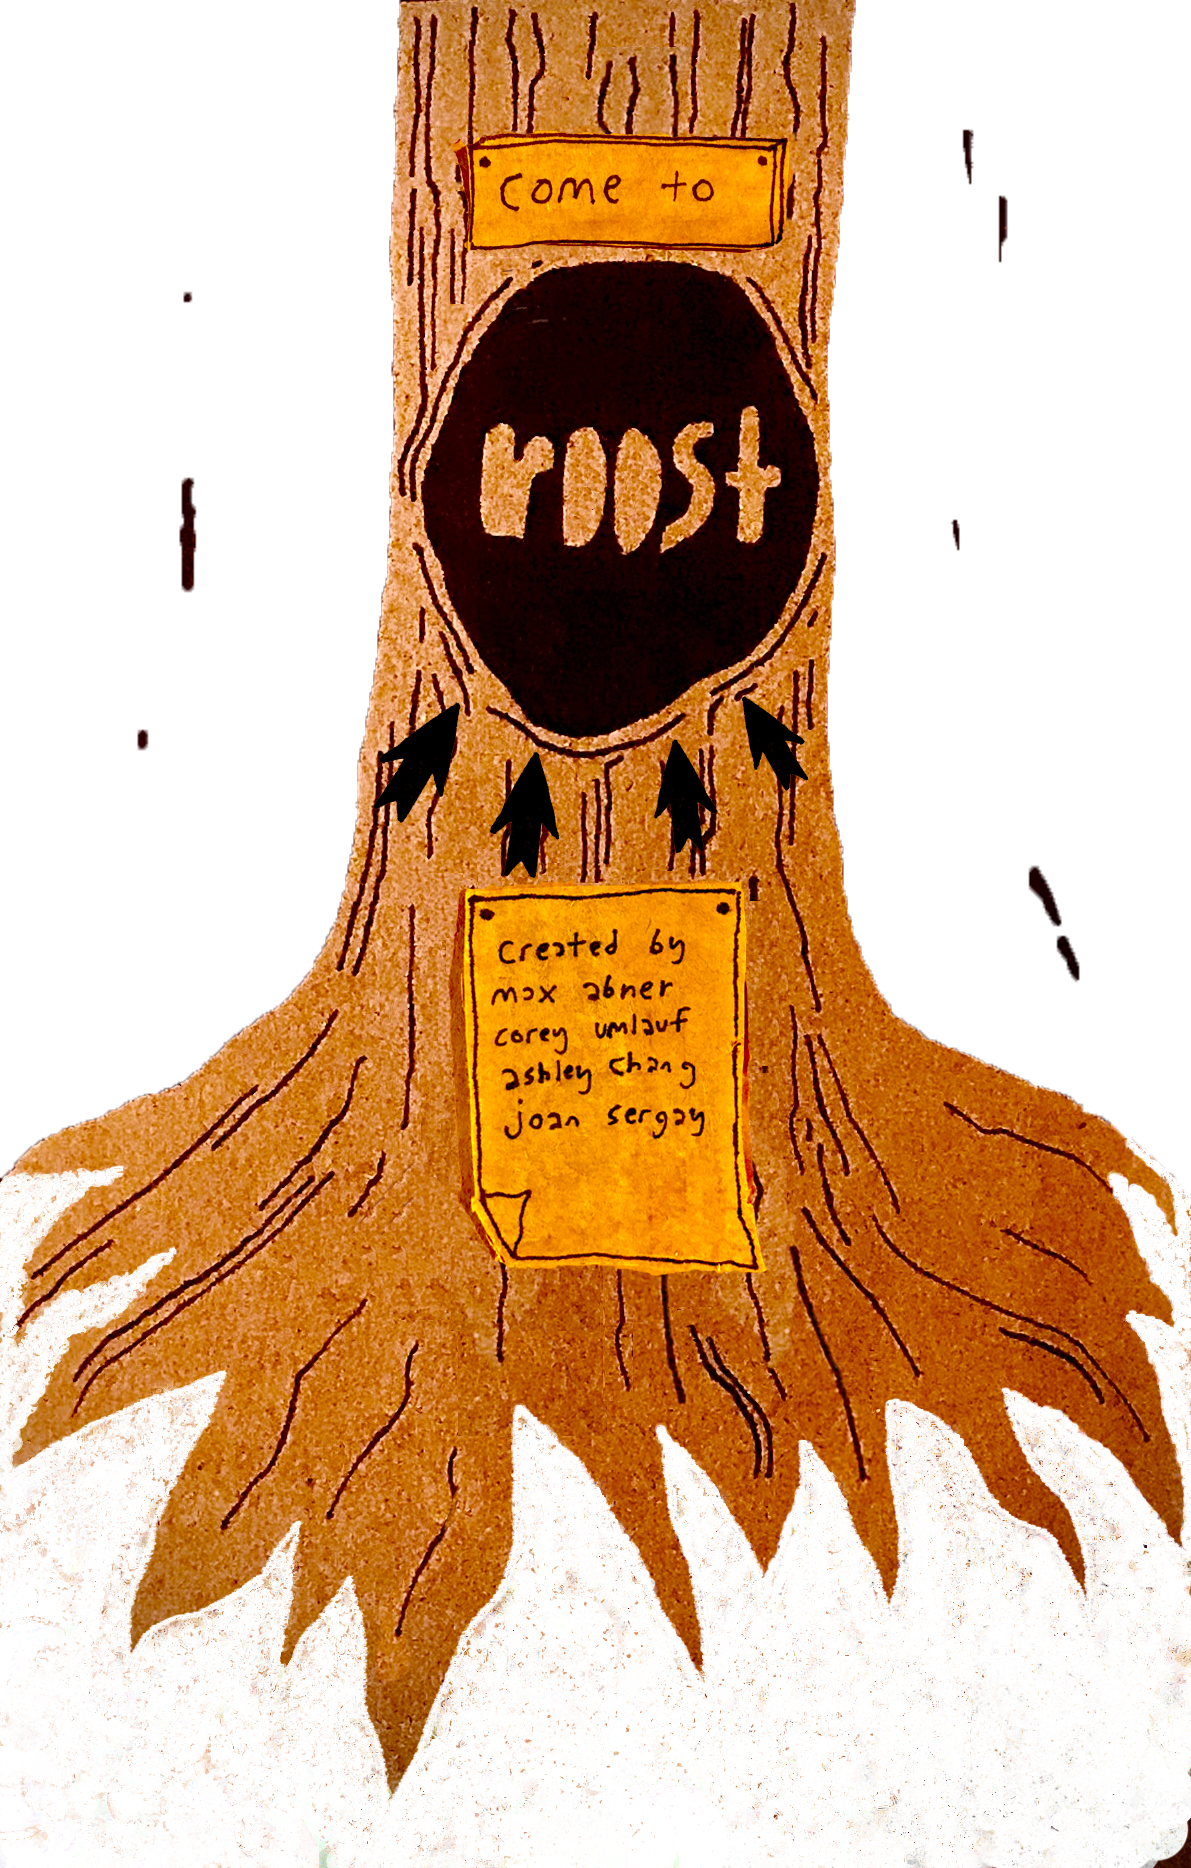 come to
roost
created by
max abner
corey umlauf
ashley chang
joan sergay